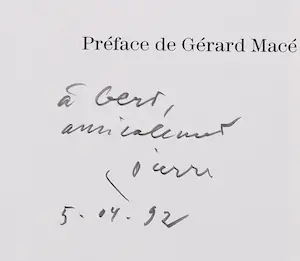 Préface de Gérard Macé
à Gert,
amicalement
Pierre
5.04.92